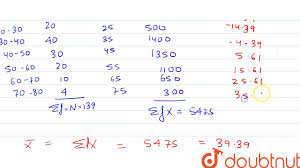 0-30 20 25 500 -14.39
30-40 40 35 1400 -4.39
40-50 30 45 1350 5.61
50-60 20 55 1100 15.61
60-70 10 65 650 25.61
70-80 4 75 300 35.
Σf=N=139 Σfx = 5475
x̄ = Σfx = 5475 = 39.39
doubtnut